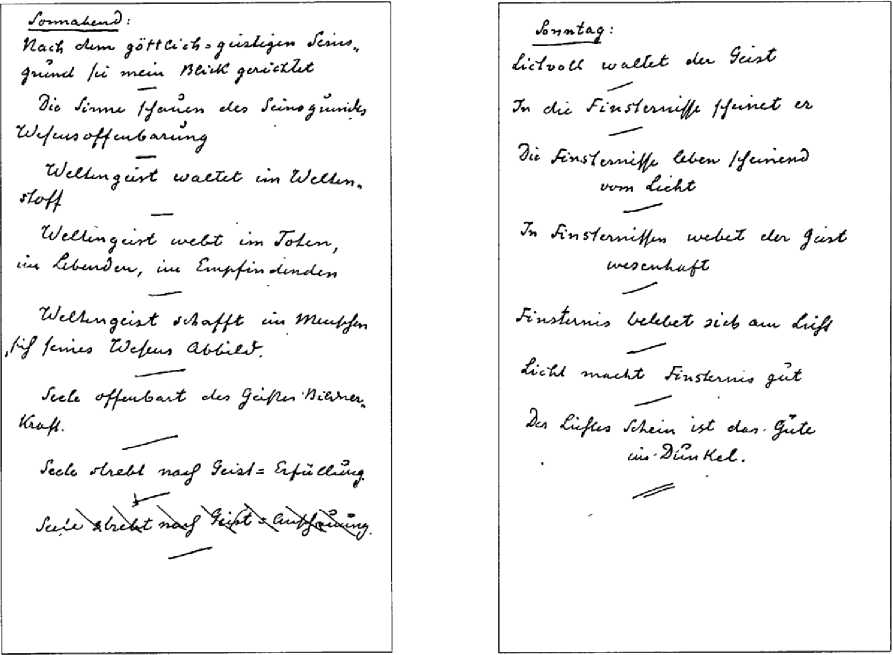 Sonnabend:
Nach dem göttlich=geistigen Seins-
grund sei mein Blick gerichtet
Die Sinne schauen des Seinsgrundes
Wesensoffenbarung
Weltengeist waltet im Welten-
stoff
Weltengeist webt im Toten,
im Lebenden, im Empfindenden
Weltengeist schafft im Menschen
sich seines Wesens Abbild.
Seele offenbart des Geistes Bildner-
Kraft.
Seele strebt nach Geist=Erfüllung.
Seele strebt nach Geist=Anschauung.
Sonntag:
Lichtvoll waltet der Geist
In die Finsternisse scheinet er
Die Finsternisse leben scheinend
vom Licht
In Finsternissen webet der Geist
wesenhaft
Finsternis belebet sich am Licht
Licht macht Finsternis gut
Des Lichtes Schein ist das Gute
im Dunkel.